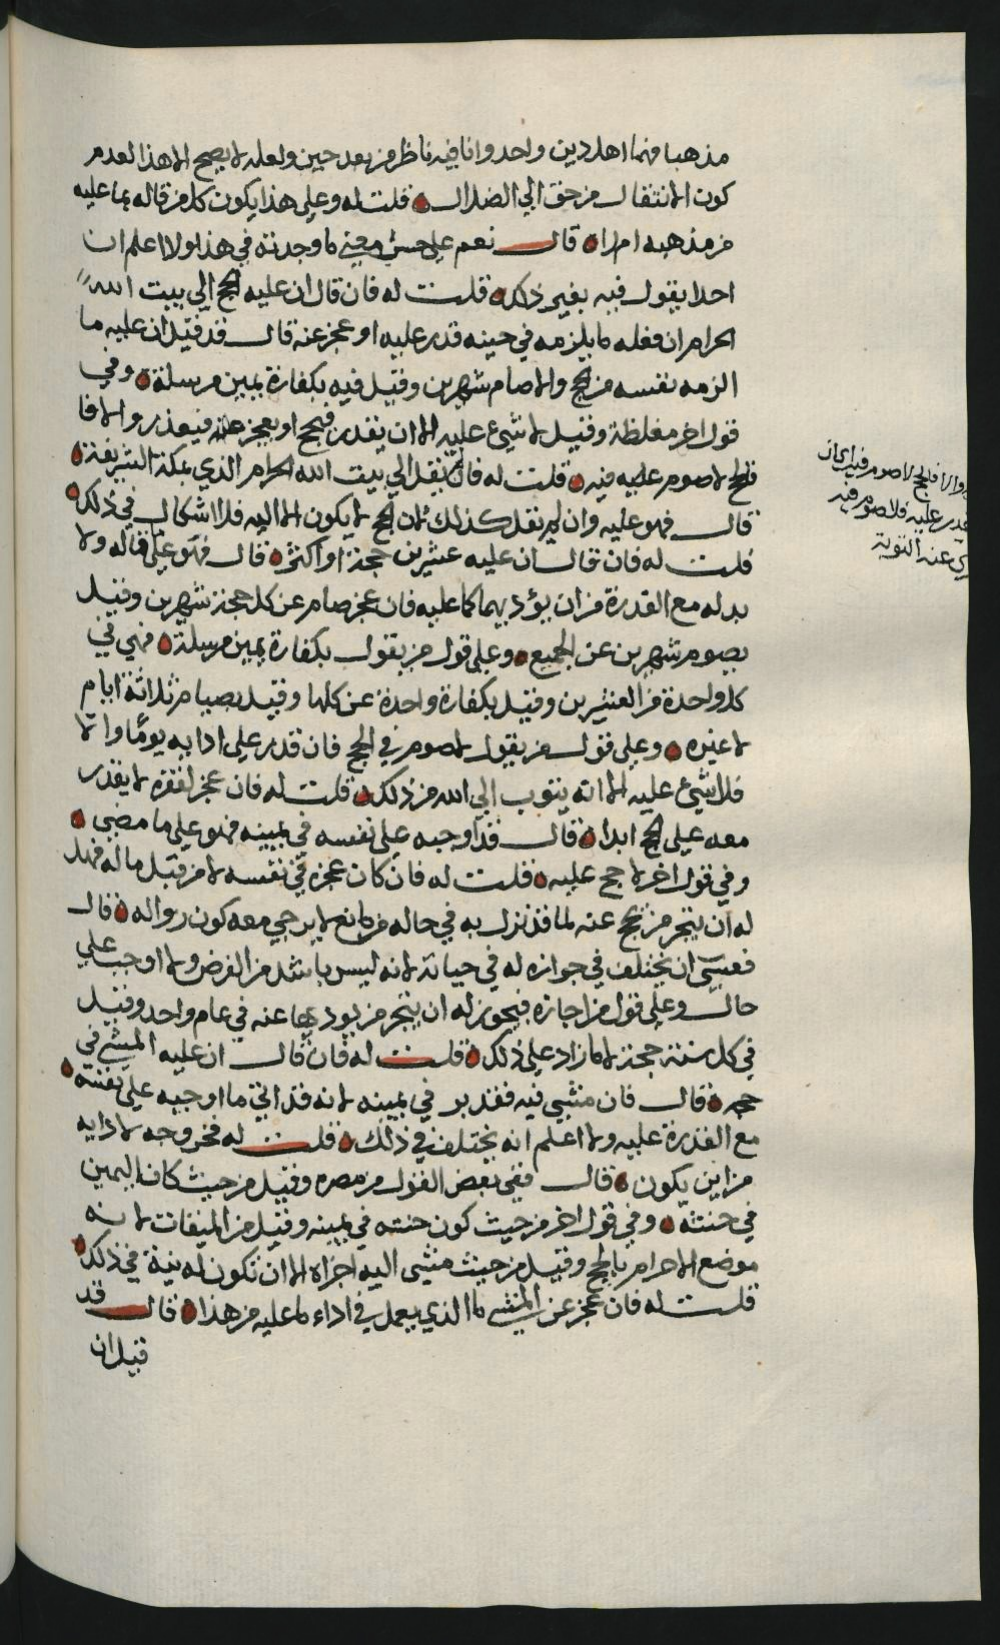 مذهبا فهما اهل دين واحد وانا فيه ناظر من بعد حين ولعله لا يصح الا هذا لعدم
كون الانتقال من حق الي الضلال قلت له وعلي هذا يكون كل من قاله بما عليه
من مذهبه ام لا قال نعم علي حسب معني ما وجدته في هذا ولا اعلم ان
احدا يقول فيه بغير ذلك قلت له فان قال ان عليه الحج الي بيت الله
الحرام ان فعله ما يلزمه في حينه قدر عليه او عجز عنه قال قد قيل ان عليه ما
الزمه نفسه من الحج والا صام شهرين وقيل فيه بكفارة يمين مرسلة وفي
قول اخر مغلظة وقيل لا شيء عليه الا ان يقدر فيحج او يعجز عنه فيعذر والا فا
فالحج لا صوم عليه فيه قلت له فان لم يقل الي بيت الله الحرام الذي بمكة الشريفة
قال فهو عليه وان لم يقل كذلك لان الحج لا يكون الا اليه فلا اشكال في ذلك
قلت له فان قال ان عليه عشرين حجة او اكثر قال فهو علي قاله ولا
بد له مع القدرة من ان يؤديها كما عليه فان عجز صام عن كل حجة شهرين وقيل
يصوم شهرين عن الجميع وعلي قول من يقول بكفارة يمين مرسلة فهي في
كل واحدة من العشرين وقيل بكفارة واحدة عن كلها وقيل بصيام ثلاثة ايام
لا غيره وعلي قول من يقول لا صوم في الحج فان قدر علي ادايه يوما والا
فلا شيء عليه الا انه يتوب الي الله من ذلك قلت له فان عجز لفقره لا يقدر
معه علي الحج ابدا قال قد اوجبه علي نفسه في يمينه فهو علي ما مضي
وفي قول اخر لا حج عليه قلت له فان كان عجزه في نفسه لا من قبل ماله فهل
له ان يتجر من يحج عنه لما قد نزل به في حاله من مانع لا يرجي معه كون زواله قال
فعسي ان يختلف في جوازه له في حياته لانه ليس باشد من الفرض ولا اوجب علي
حال وعلي قول من اجازه فيجوز له ان يتجر من يوديها عنه في عام واحد وقيل
في كل سنة حجة لا ما زاد علي ذلك قلت له فان قال ان عليه المشي في
حجه قال فان مشي فيه فقد بر في يمينه لانه قد اتي ما اوجبه علي نفسه
مع القدرة عليه ولا اعلم انه يختلف في ذلك قلت له فخروجه لادايه
من اين يكون قال ففي بعض القول من مصره وقيل من حيث كان اليمين
في حنثه وفي قول اخر من حيث كون حنثه في يمينه وقيل من الميقات لانه
موضع الاحرام بالحج وقيل من حيث مشي اليه اجزاه الا ان تكون له نية في ذلك
قلت له فان عجز عن المشي ما الذي يعمل في اداء ما عليه من هذا قال قد
قيل ان
والا فالحج لا صوم فيه
قدر عليه فلا صوم فيه
عنه التوبة